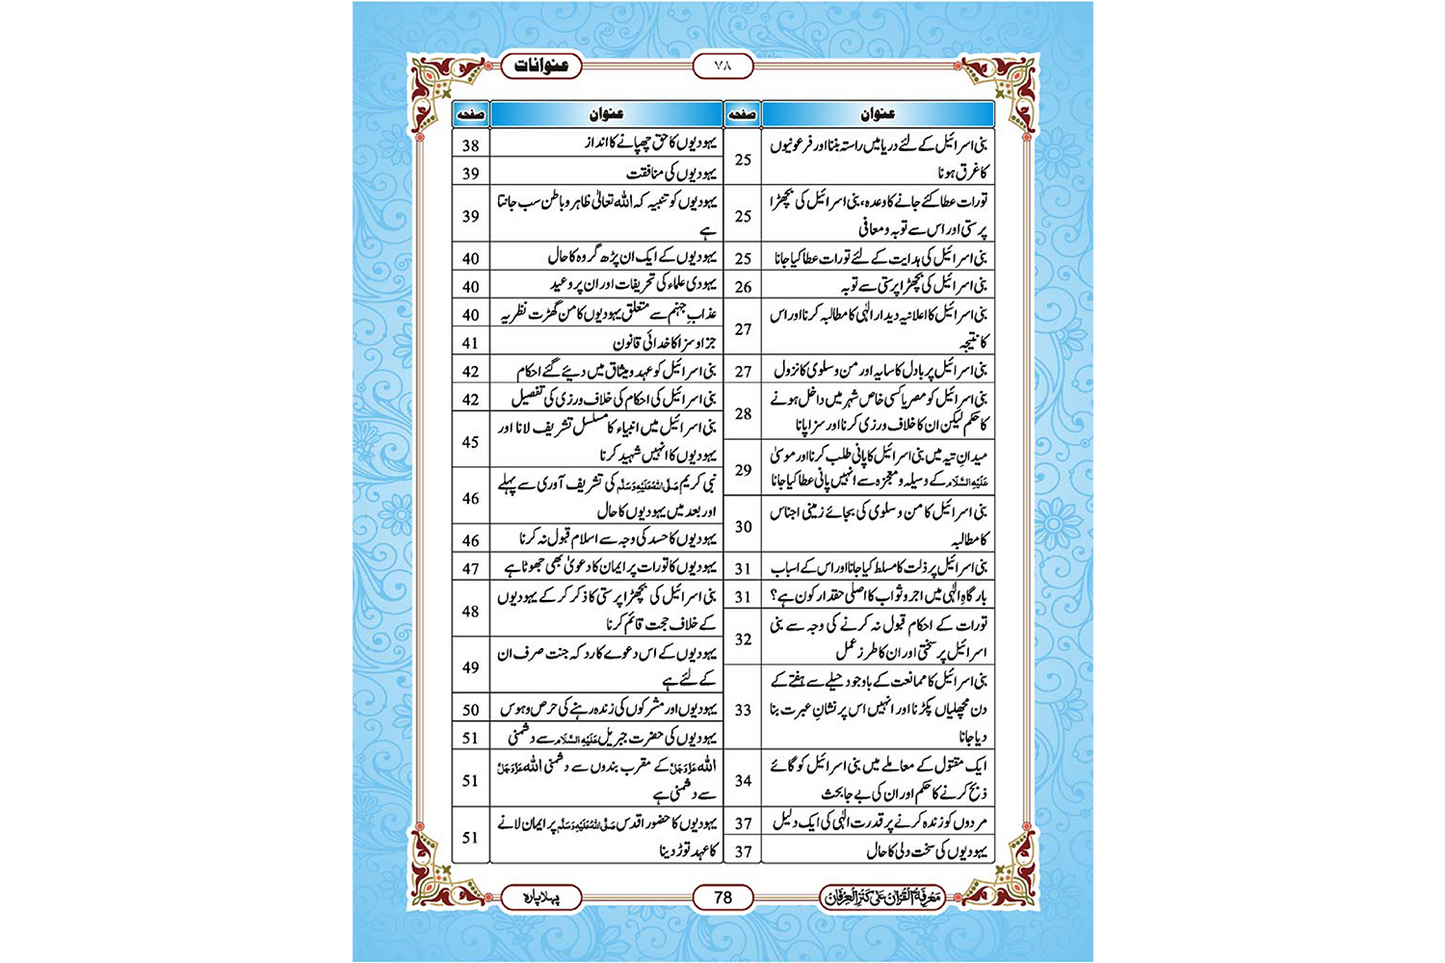 عنوانات
۷۸
عنوان
صفحه
بنی اسرائیل کے لئے دریا میں راستہ بننا اور فرعونیوں
کا غرق ہونا
25
تورات عطا کئے جانے کا وعدہ، بنی اسرائیل کی بچھڑا
پرستی اور اس سے توبہ و معافی
25
بنی اسرائیل کی ہدایت کے لئے تورات عطا کیا جانا
25
بنی اسرائیل کی بچھڑا پرستی سے توبہ
26
بنی اسرائیل کا اعلانیہ دیدار الٰہی کا مطالبہ کرنا اور اس
کا نتیجہ
27
بنی اسرائیل پر بادل کا سایہ اور من و سلویٰ کا نزول
27
بنی اسرائیل کو مصر یا کسی خاص شہر میں داخل ہونے
کا حکم لیکن ان کا خلاف ورزی کرنا اور سزا پانا
28
میدانِ تیہ میں بنی اسرائیل کا پانی طلب کرنا اور موسیٰ
عَلَیْہِ السَّلَام کے وسیلہ و معجزہ سے انہیں پانی عطا کیا جانا
29
بنی اسرائیل کا من و سلویٰ کی بجائے زمینی اجناس
کا مطالبہ
30
بنی اسرائیل پر ذلت کا مسلط کیا جانا اور اس کے اسباب
31
بارگاہِ الٰہی میں اجر و ثواب کا اصلی حقدار کون ہے؟
31
تورات کے احکام قبول نہ کرنے کی وجہ سے بنی
اسرائیل پر سختی اور ان کا طرز عمل
32
بنی اسرائیل کا ممانعت کے باوجود حیلے سے ہفتے کے
دن مچھلیاں پکڑنا اور انہیں اس پر نشانِ عبرت بنا
دیا جانا
33
ایک مقتول کے معاملے میں بنی اسرائیل کو گائے
ذبح کرنے کا حکم اور ان کی بے جا بحث
34
مردوں کو زندہ کرنے پر قدرت الٰہی کی ایک دلیل
37
یہودیوں کی سخت دلی کا حال
37
عنوان
صفحه
یہودیوں کا حق چھپانے کا انداز
38
یہودیوں کی منافقت
39
یہودیوں کو تنبیہ کہ اللہ تعالیٰ ظاہر و باطن سب جانتا
ہے
39
یہودیوں کے ایک ان پڑھ گروہ کا حال
40
یہودی علماء کی تحریفات اور ان پر وعید
40
عذابِ جہنم سے متعلق یہودیوں کا من گھڑت نظریہ
40
جزا و سزا کا خدائی قانون
41
بنی اسرائیل کو عہد و میثاق میں دیئے گئے احکام
42
بنی اسرائیل کی احکام کی خلاف ورزی کی تفصیل
42
بنی اسرائیل میں انبیاء کا مسلسل تشریف لانا اور
یہودیوں کا انہیں شہید کرنا
45
نبی کریم صَلَّی اللہُ عَلَیْہِ وَسَلَّم کی تشریف آوری سے پہلے
اور بعد میں یہودیوں کا حال
46
یہودیوں کا حسد کی وجہ سے اسلام قبول نہ کرنا
46
یہودیوں کا تورات پر ایمان کا دعویٰ بھی جھوٹا ہے
47
بنی اسرائیل کی بچھڑا پرستی کا ذکر کر کے یہودیوں
کے خلاف حجت قائم کرنا
48
یہودیوں کے اس دعوے کا رد کہ جنت صرف ان
کے لئے ہے
49
یہودیوں اور مشرکوں کی زندہ رہنے کی حرص و ہوس
50
یہودیوں کی حضرت جبریل عَلَیْہِ السَّلَام سے دشمنی
51
اللہ عَزَّوَجَلَّ کے مقرب بندوں سے دشمنی اللہ عَزَّوَجَلَّ
سے دشمنی ہے
51
یہودیوں کا حضور اقدس صَلَّی اللہُ عَلَیْہِ وَسَلَّم پر ایمان لانے
کا عہد توڑ دینا
51
مَعْرِفَةُ الْقُرْاٰن عَلٰی کَنْزِ الْعِرْفَان
78
پہلا پارہ